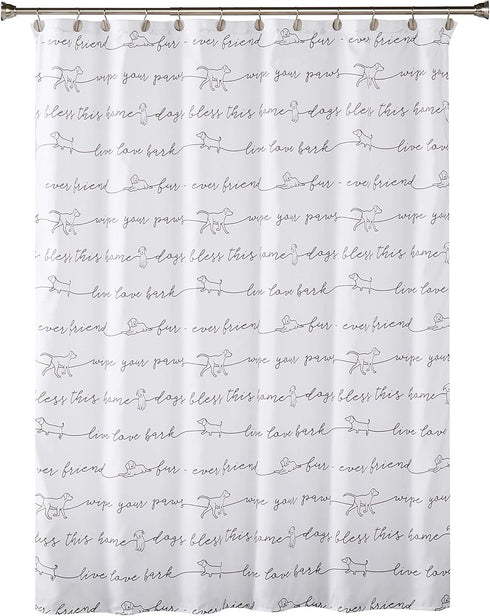 -ever friend fur - ever friend fur - ever friend
wipe your paws wipe your paws wipe
bless this home dogs bless this home dogs bless this
live love bark live love bark live love bark
ever friend fur - ever friend fur - ever friend
wipe your paws wipe your paws wipe your
bless this home dogs bless this home dogs bless this home
live love bark live love bark live love
ever friend fur - ever friend fur - ever friend
wipe your paws wipe your paws wipe your paws
bless this home dogs bless this home dogs bless this home
live love bark live love bark live love
ever friend fur - ever friend fur - ever friend
wipe your paws wipe your paws wipe your
bless this home dogs bless this home dogs bless this home
live love bark live love bark live love